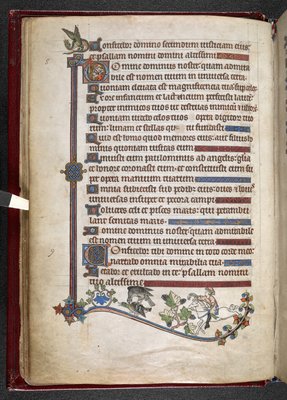 Confitebor domino secundum iusticiam eius:
et psallam nomini domini altissimi
Domine dominus noster: quam admira
bile est nomen tuum in universa terra
Quoniam elevata est magnificencia tua super celos
Ex ore infancium et lactencium perfecisti laudem
propter inimicos tuos ut destruas inimicum
Quoniam videbo celos tuos opera digitor tuo
rum: lunam et stellas que tu fundasti
Quid est homo quod memor es eius: aut filius
minis quoniam visitas eum
Minuisti eum paulominus ab angelis: gloria
et honore coronasti eum: et constituisti eum su
per opera manuum tuarum
Omnia subiecisti sub pedibus eius: oves et boves
universas insuper et pecora campi
Volucres celi et pisces maris: qui perambu
lant semitas maris
Domine dominus noster: quam admirabile
est nomen tuum in universa terra
Confitebor tibi domine in toto corde meo:
narrabo omnia mirabilia tua
Letabor et exultabo in te: psallam nomini
tuo altissime